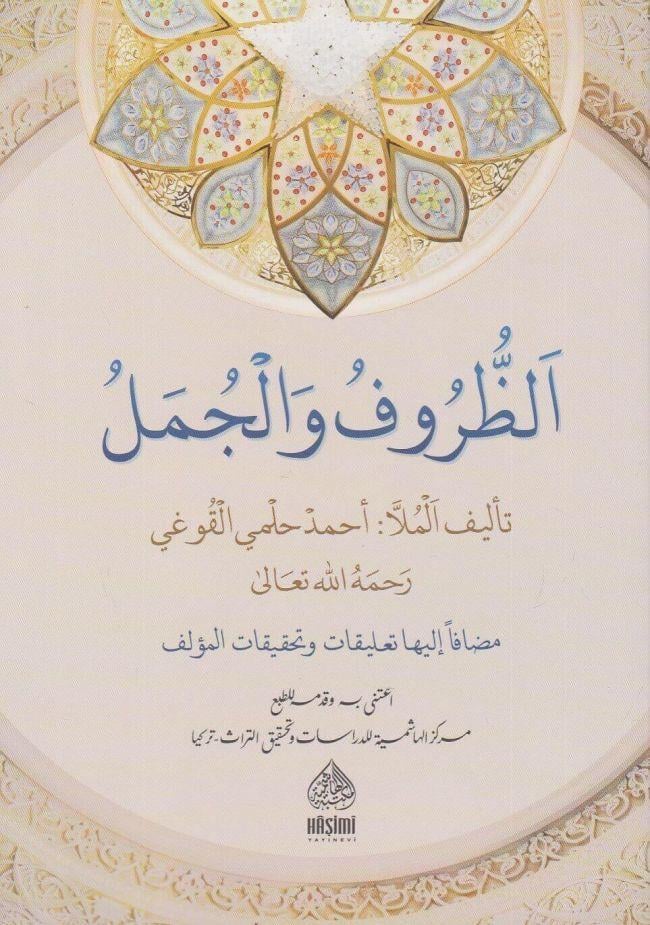 اَلظُّرُوفُ وَالْجُمَلُ
تأليف اَلْمُلاَّ: أحمدْ حلْمي الْقُوغي
رَحمَهُ الله تعَالىٰ
مضافاً إليها تعليقات وتحقيقات المؤلف
اعتنى به وقدمه للطبع
مركز الهاشمية للدراسات وتحقيق التراث - تركيا
HÂŞİMÎ
YAYINEVİ